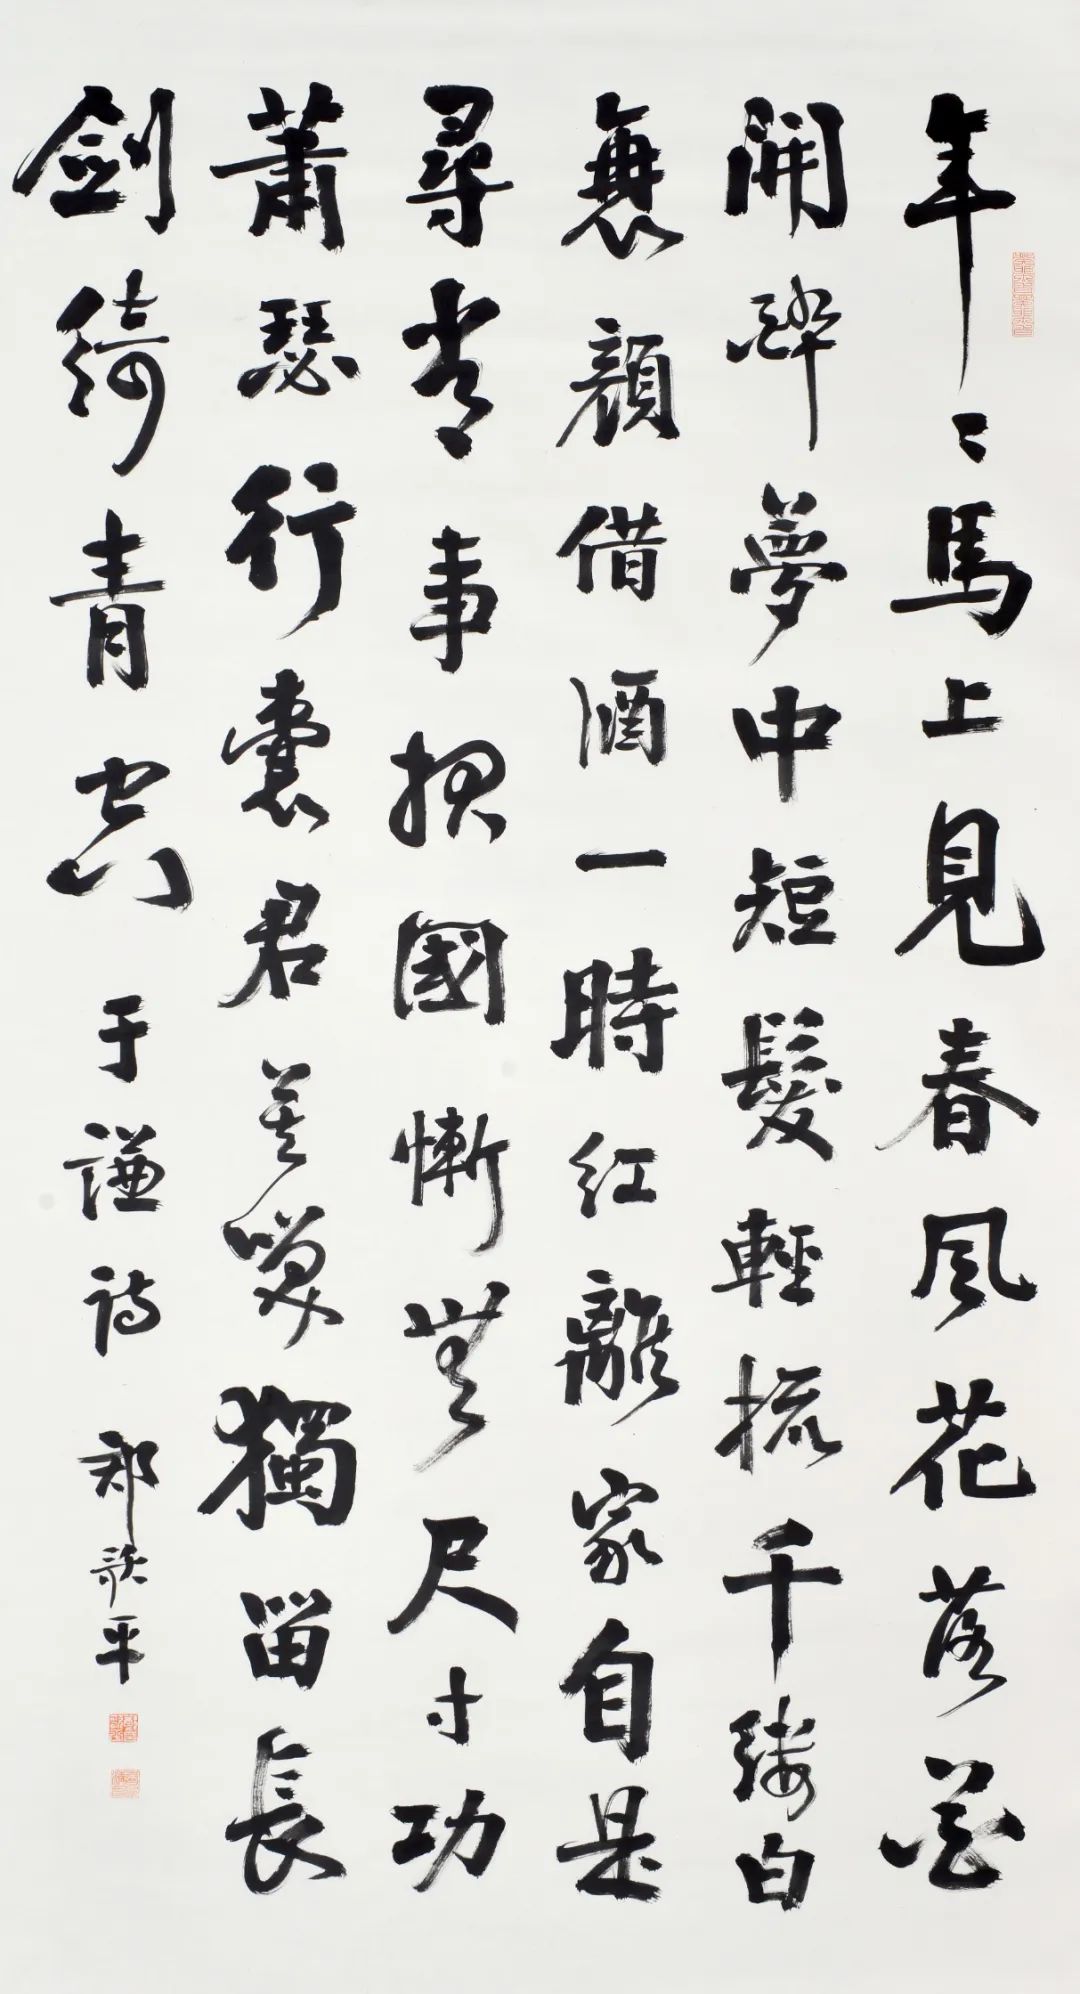 年〻馬上見春風花落花
開酔夢中短髮輕梳千縷白
衰顏借酒一時紅離家自是
尋常事报國慚無尺寸功
蕭瑟行囊君莫咲獨留長
劍綺青空 于謙詩 郑歌平